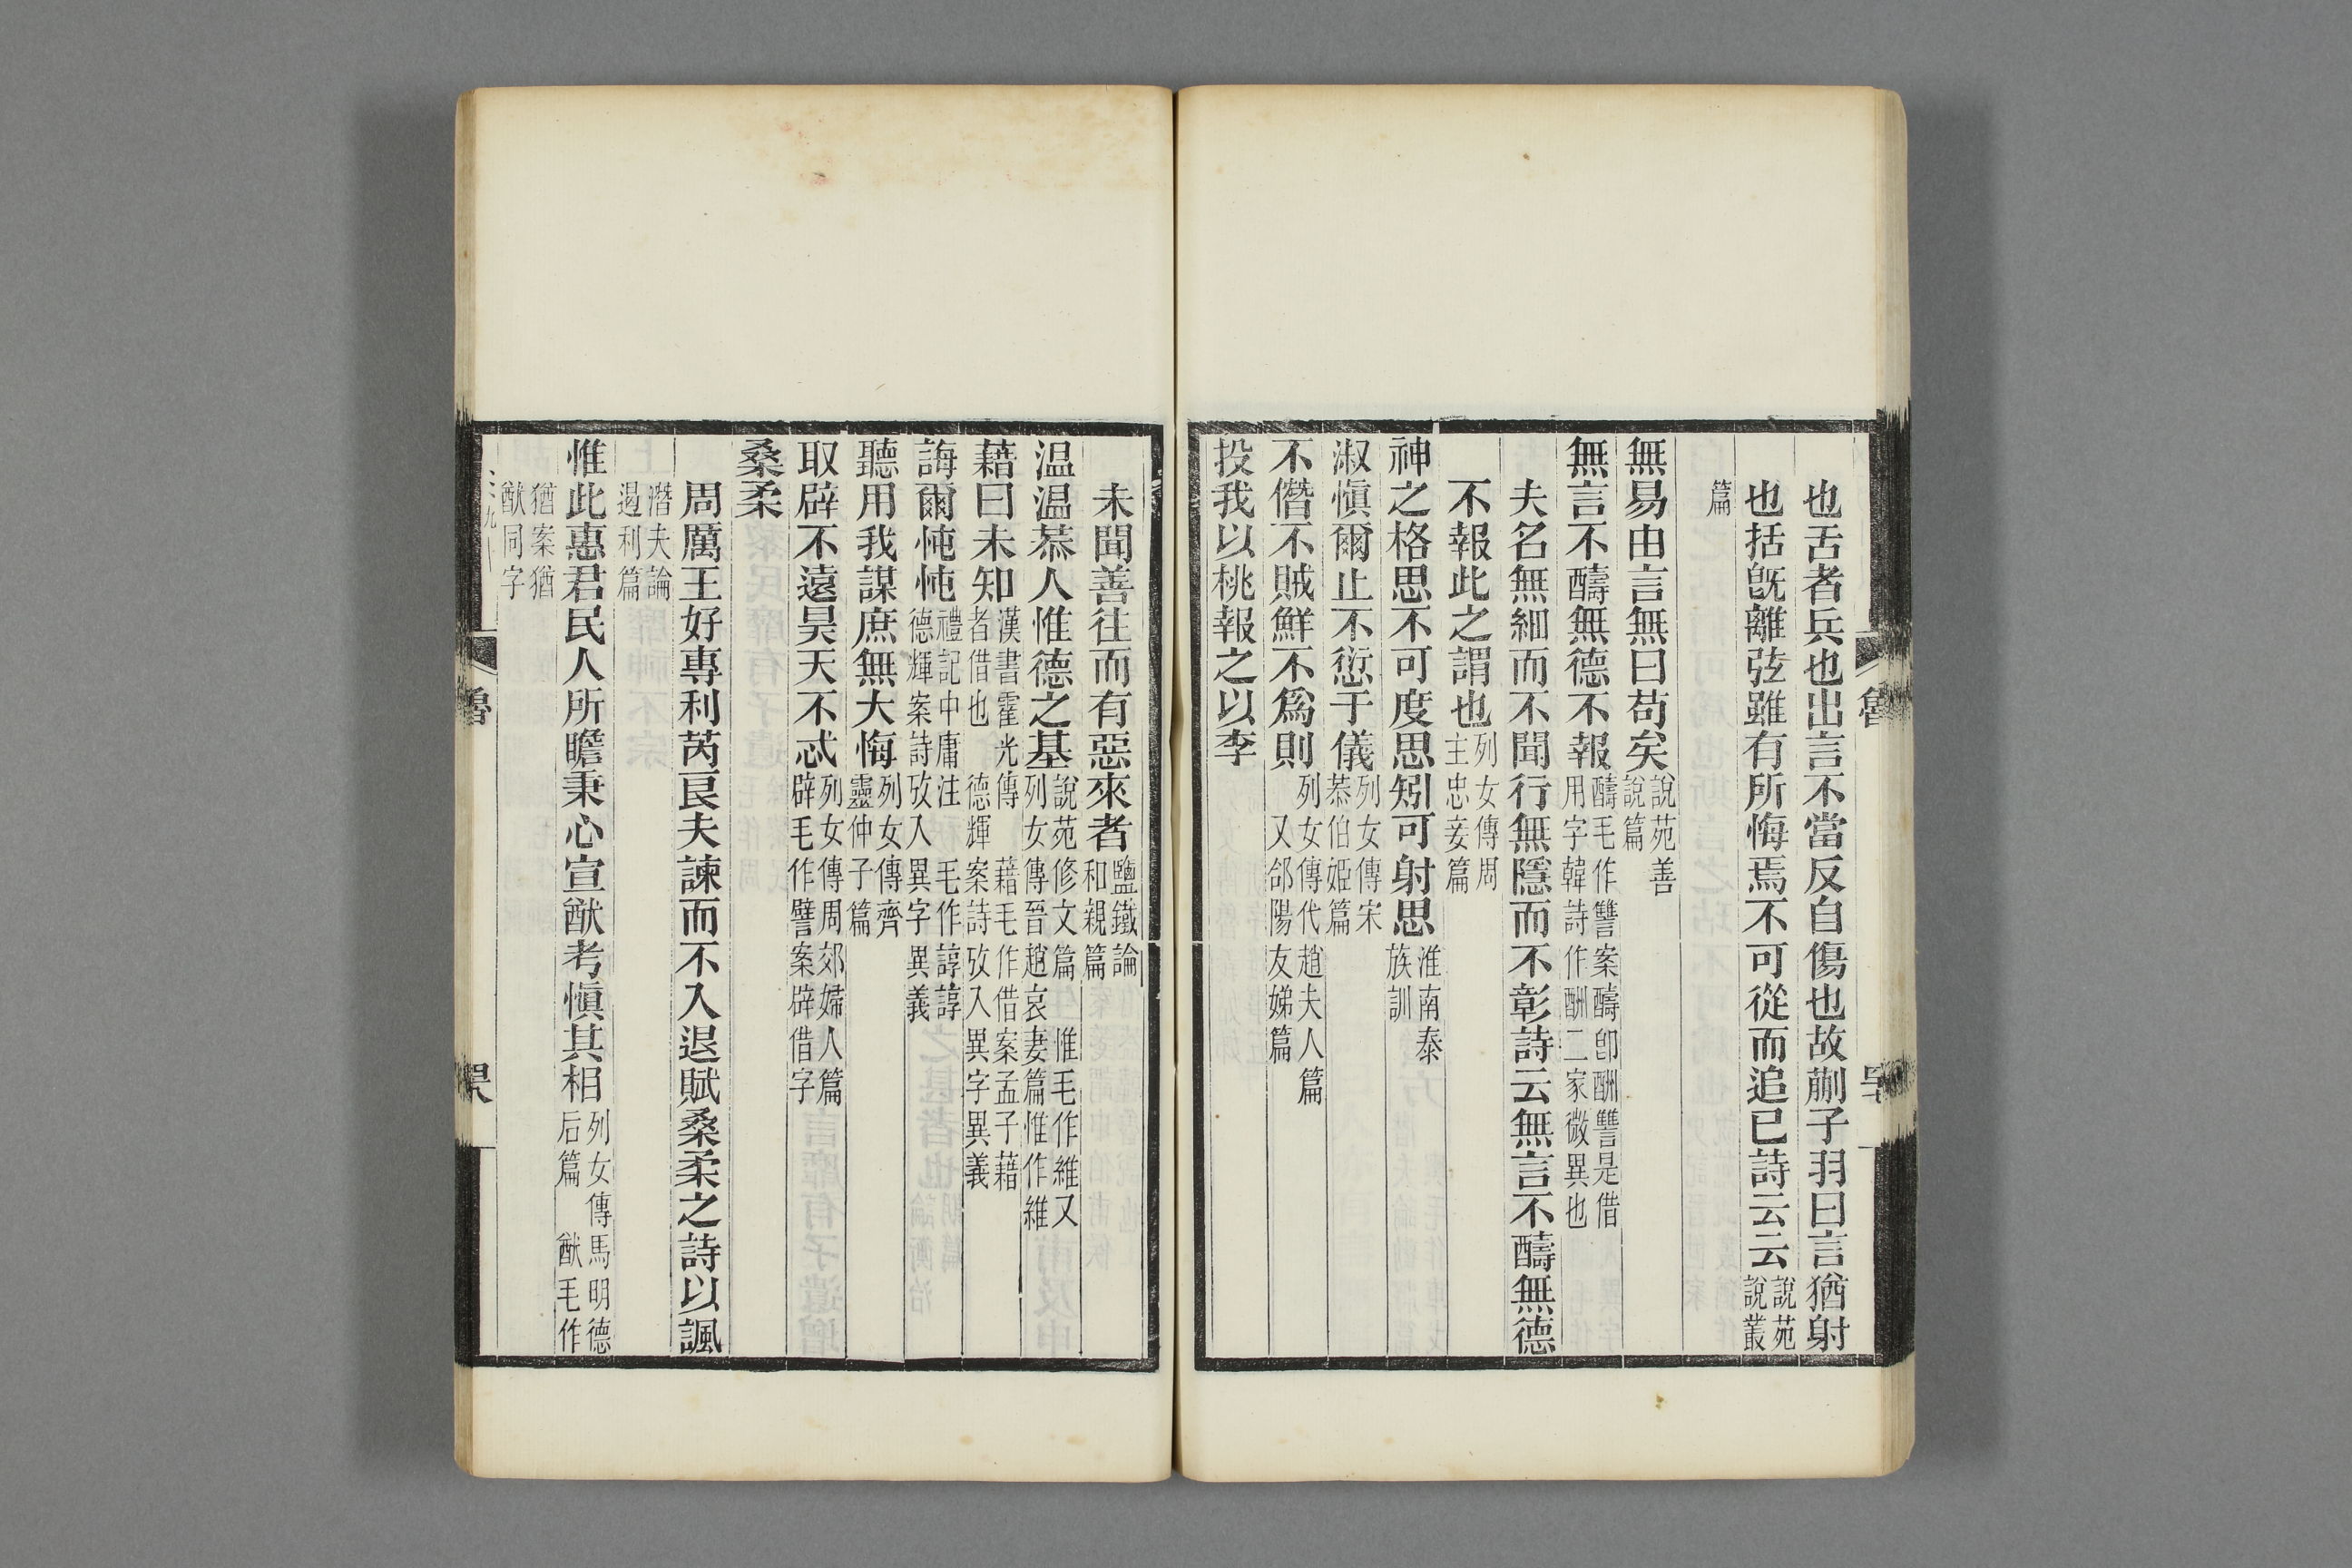 也舌者兵也出言不當反自傷也故蒯子羽曰言猶射
也括旣離弦雖有所悔焉不可從而追已詩云云說苑說叢
篇
無易由言無曰苟矣說苑善說篇
無言不醻無德不報醻毛作讐案醻卽酬讐是借用字韓詩作酬二家微異也
夫名無細而不聞行無隱而不彰詩云無言不醻無德
不報此之謂也列女傳周主忠妾篇
神之格思不可度思矧可射思淮南泰族訓
淑愼爾止不愆于儀列女傳宋恭伯姬篇
不僭不賊鮮不爲則列女傳代趙夫人篇又郃陽友娣篇
投我以桃報之以李
魯
未聞善往而有惡來者鹽鐵論和親篇
温温恭人惟德之基說苑修文篇惟毛作維又列女傳晉趙衰妻篇惟作維
藉曰未知漢書霍光傳藉毛作借案孟子藉者借也德輝案詩攷入異字異義
誨爾忳忳禮記中庸注毛作諄諄德輝案詩攷入異字異義
聽用我謀庶無大悔列女傳齊靈仲子篇
取辟不遠昊天不忒列女傳周郊婦人篇辟毛作譬案辟借字
桑柔
周厲王好專利芮良夫諫而不入退賦桑柔之詩以諷
潛夫論遏利篇
惟此惠君民人所瞻秉心宣猷考愼其相列女傳馬明德后篇猷毛作
猶案猶猷同字
魯